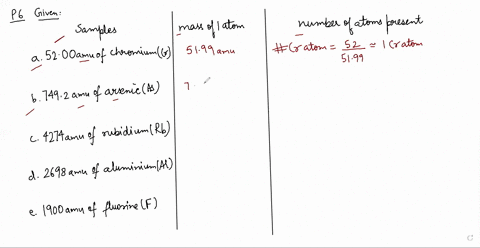 P6 Given:
Samples
mass of 1 atom
number of atoms present
a. 52.00 amu of chromium (Cr)
51.99 amu
# Cr atom = 52 / 51.99 = 1 Cr atom
b. 749.2 amu of arsenic (As)
7.
c. 4274 amu of rubidium (Rb)
d. 2698 amu of aluminium (Al)
e. 1900 amu of fluorine (F)